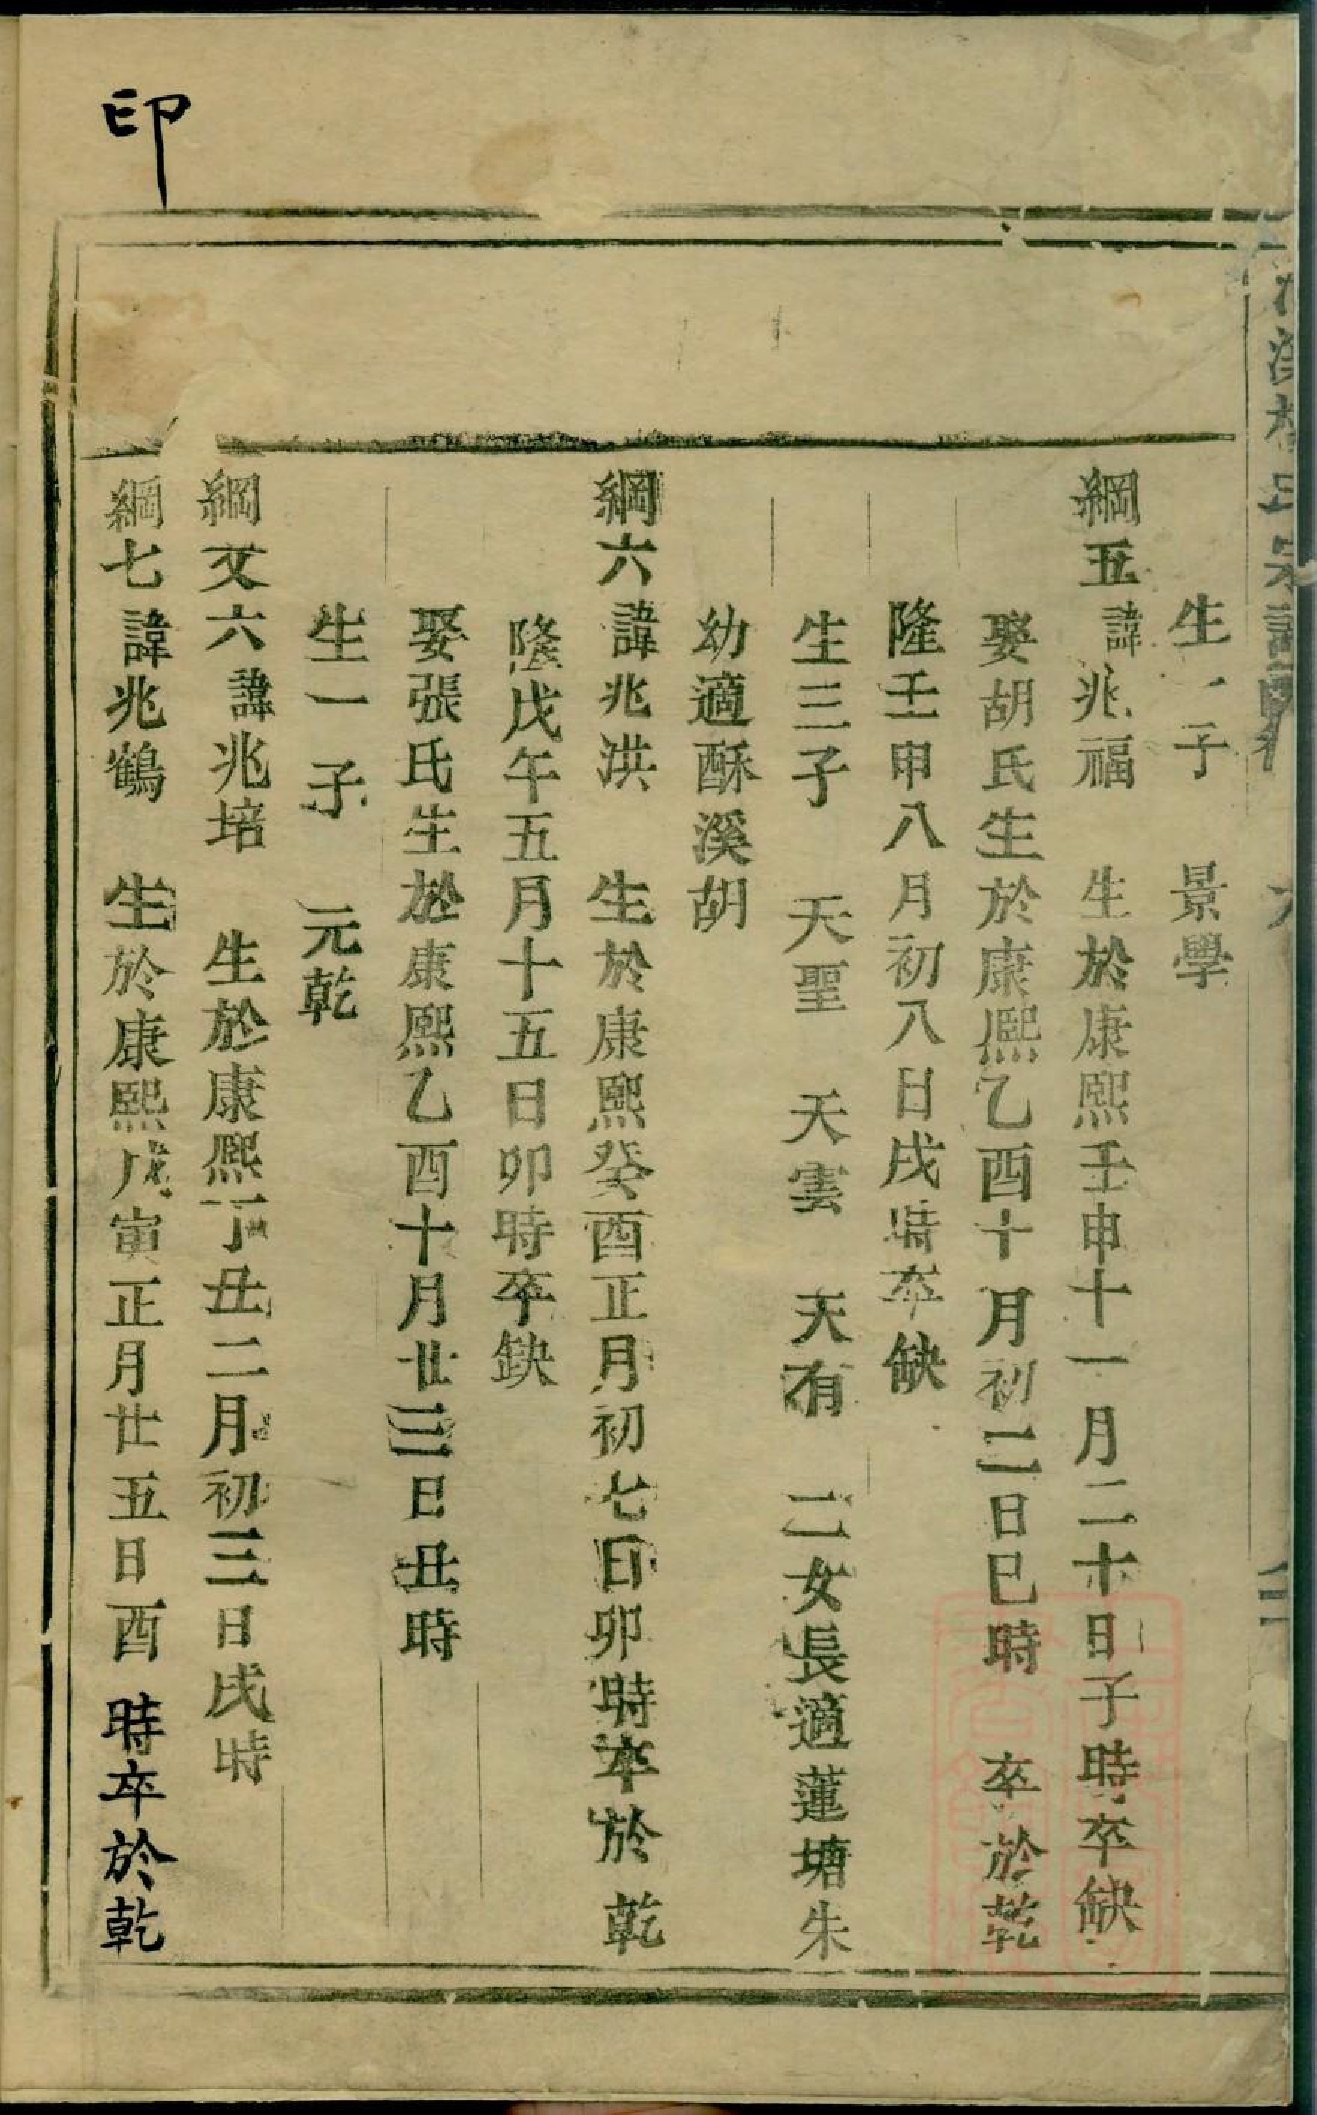 生一子　景學
綱五諱兆福　生於康熙壬申十一月二十日子時卒缺
娶胡氏生於康熙乙酉十月初二日巳時　卒於乾
隆壬申八月初八日戌時卒缺
生三子　天聖　天雲　天有　二女長適蓮塘朱
幼適酥溪胡
綱六諱兆洪　生於康熙癸酉正月初七日卯時卒於乾
隆戊午五月十五日卯時卒缺
娶張氏生於康熙乙酉十月廿三日丑時
生一子　元乾
綱文六諱兆培　生於康熙丁丑二月初三日戌時
綱七諱兆鶴　生於康熙戊寅正月廿五日酉時卒於乾
印